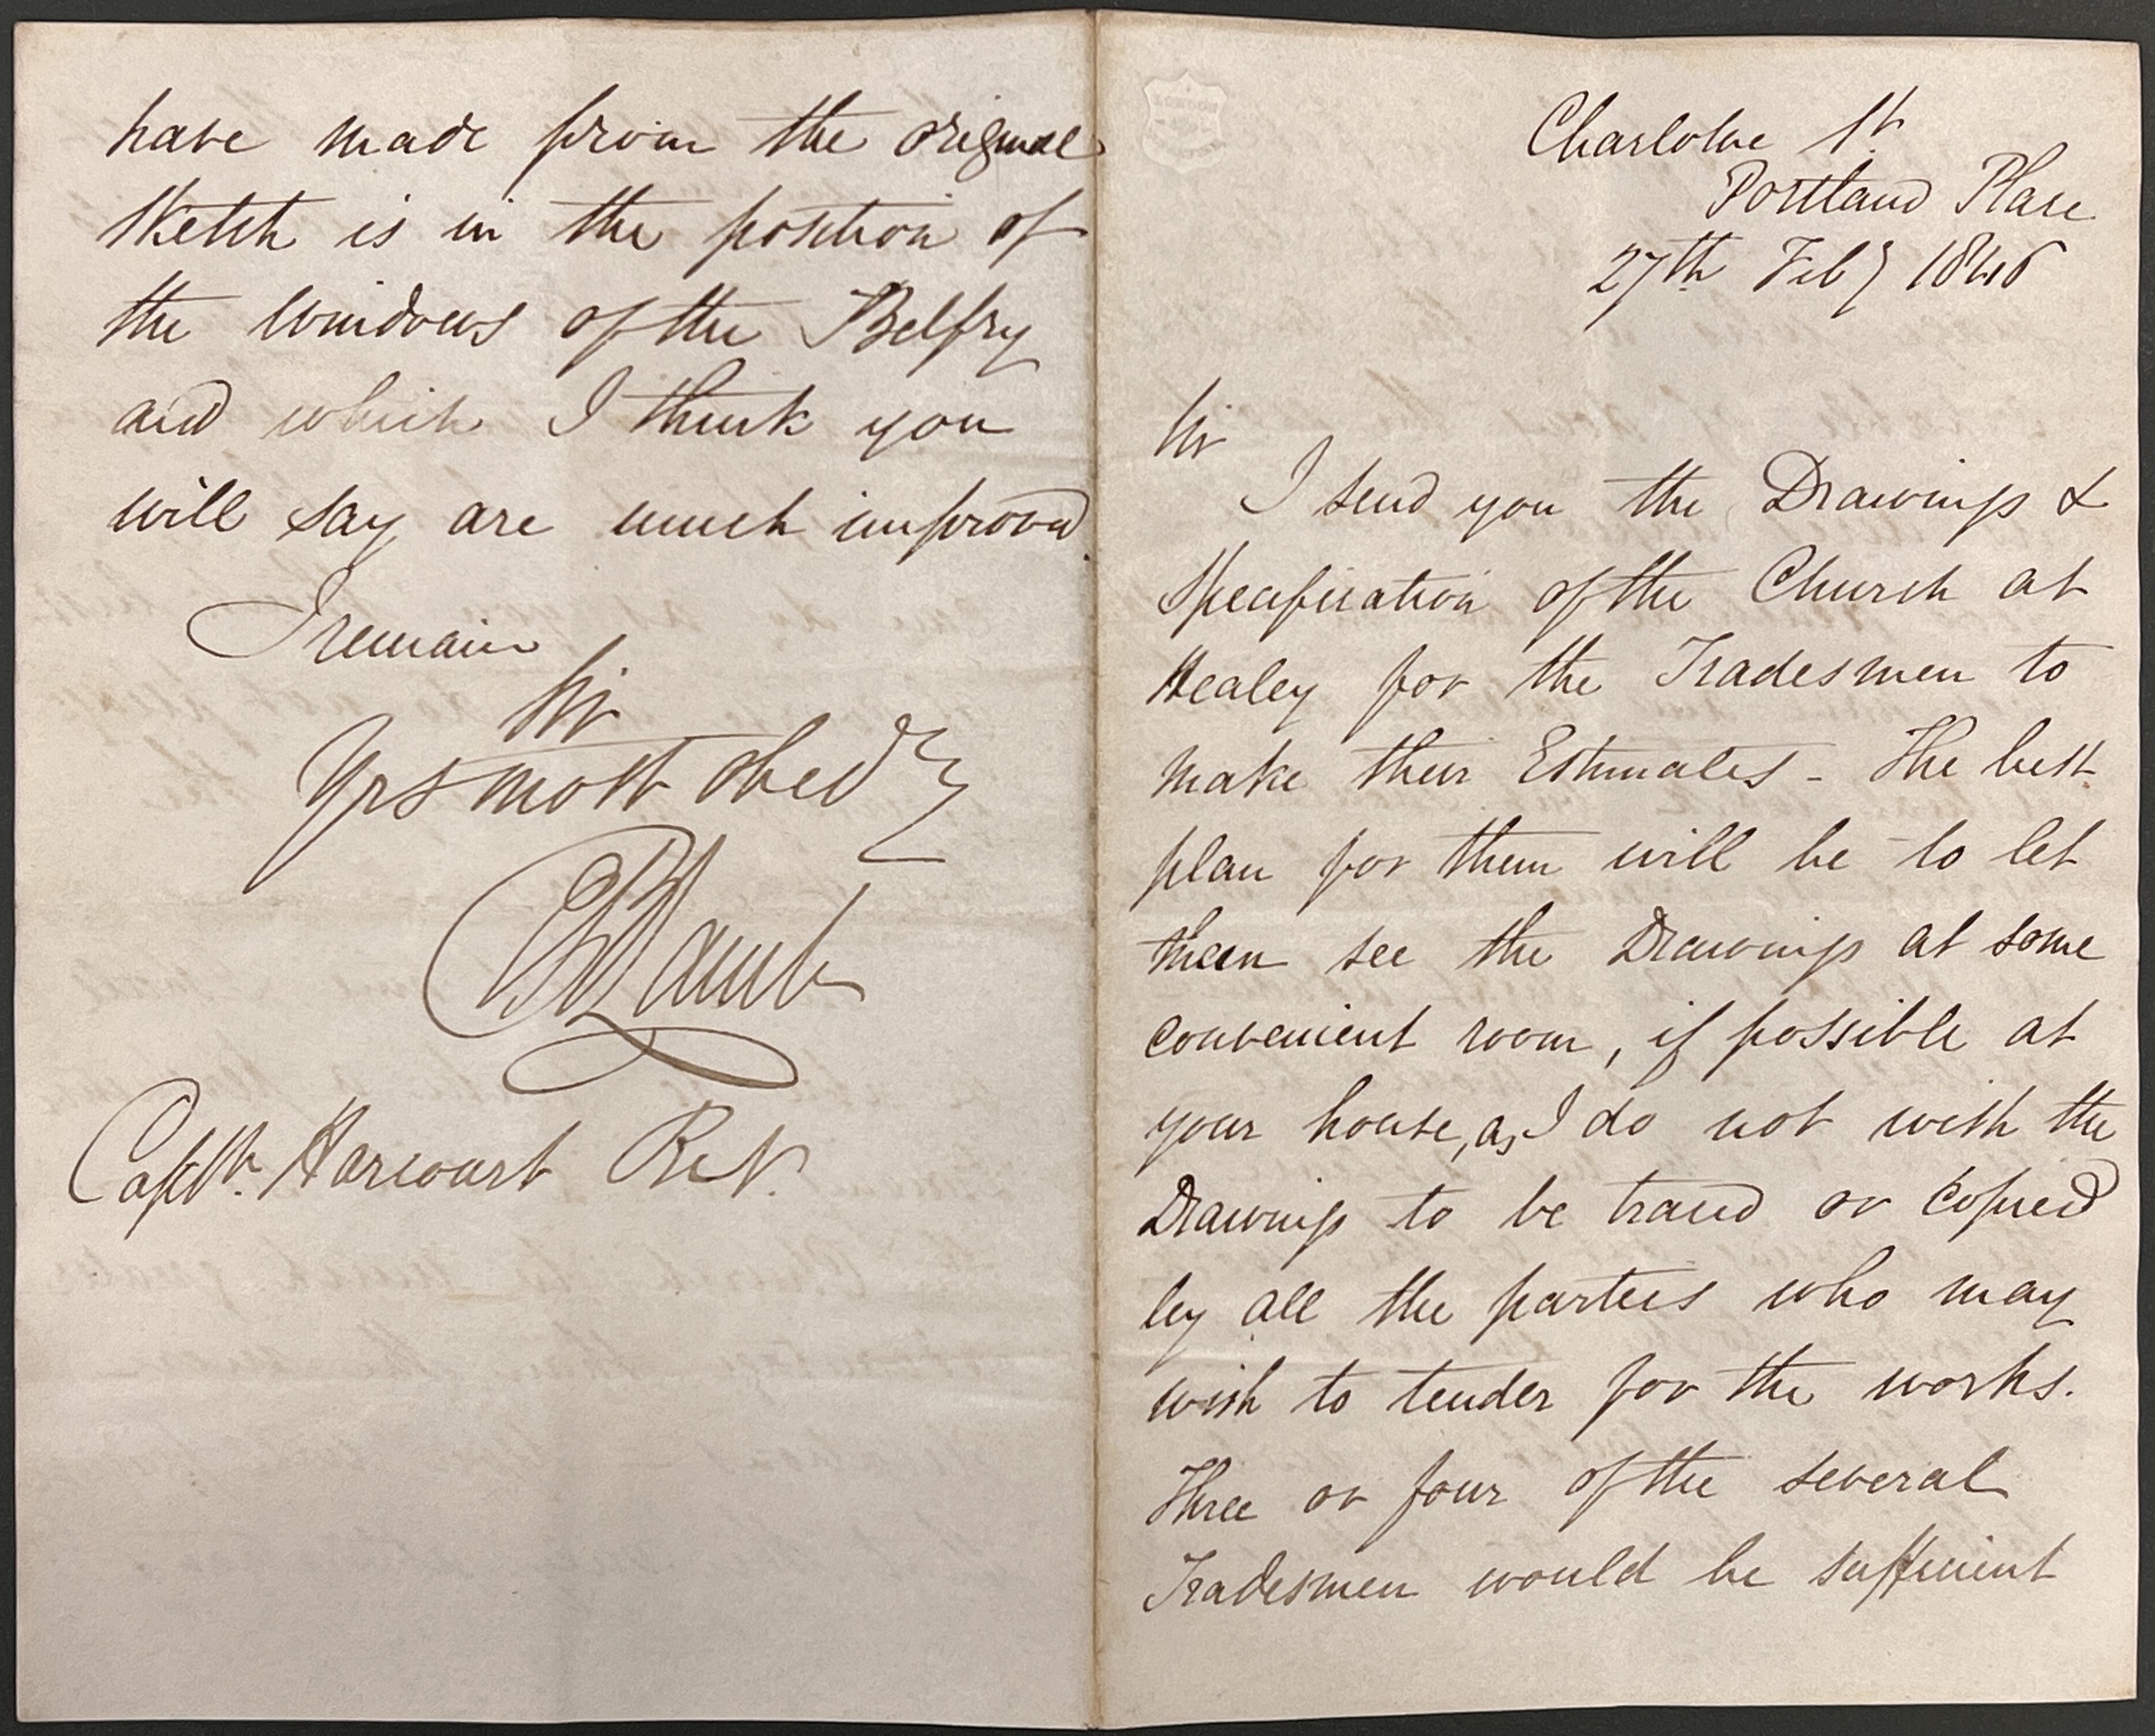 Charlotte St.
Portland Place
27th Feby 1846
Sir
I send you the Drawings &
Specification of the Church at
Healey for the Tradesmen to
make their Estimates - The best
plan for them will be to let
them see the Drawings at some
convenient room, if possible at
your house, as I do not wish the
Drawings to be traced or copied
by all the parties who may
wish to tender for the works.
Three or four of the several
Tradesmen would be sufficient
have made from the original
Sketch is in the position of
the Windows of the Belfry
and which I think you
will say are much improved.
I remain
Sir
Yrs most obedt
EBLamb
Captn. Harcourt R.N.